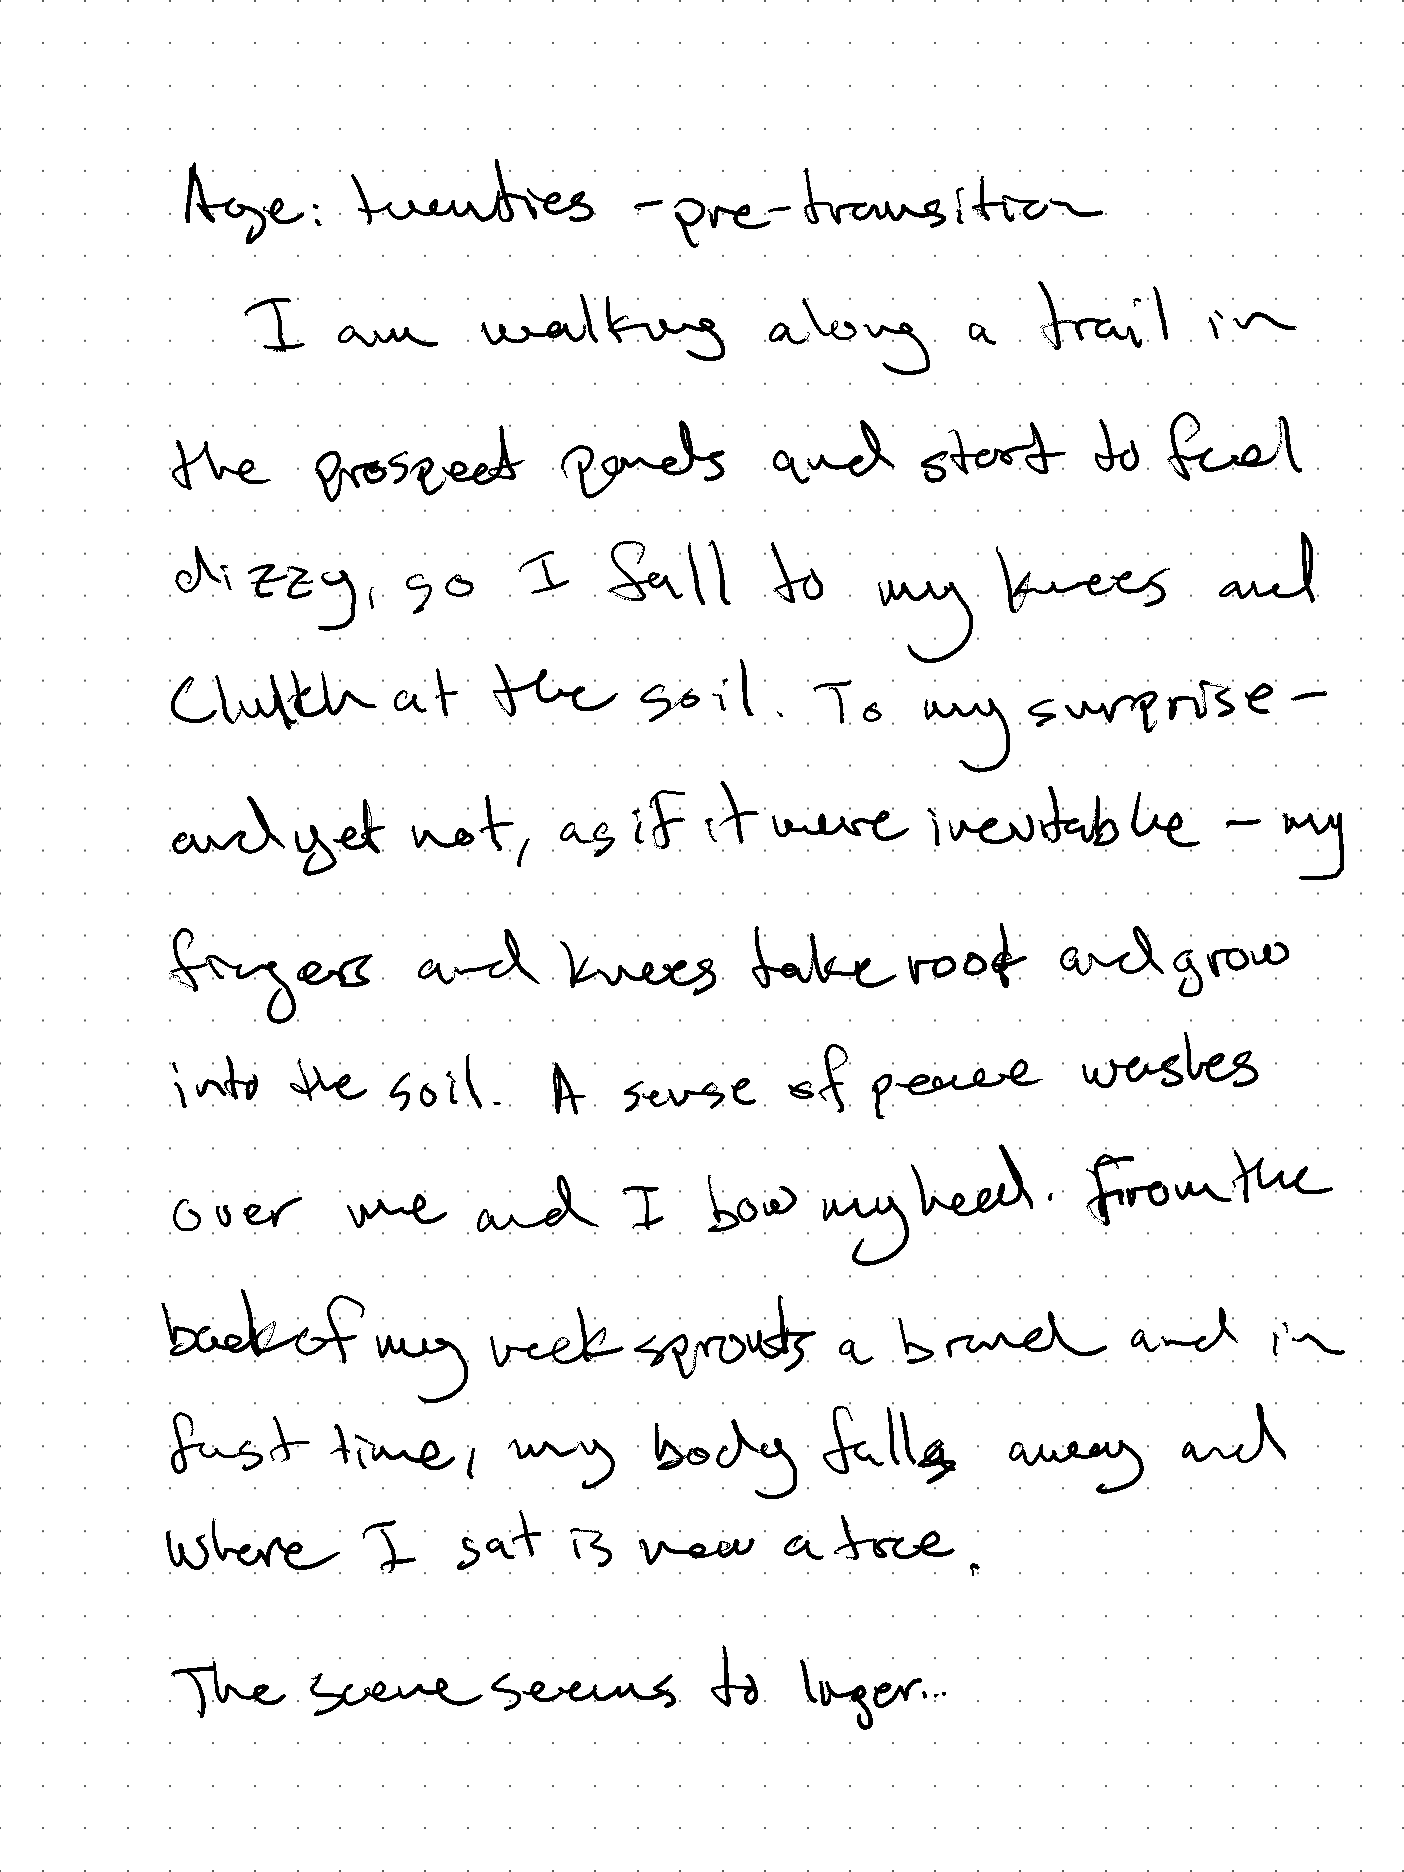 Age: twenties - pre-transition
I am walking along a trail in
the prospect ponds and start to feel
dizzy, so I fall to my knees and
Clutch at the soil. To my surprise -
and yet not, as if it were inevitable - my
fingers and knees take root and grow
into the soil. A sense of peace washes
over me and I bow my head. From the
back of my neck sprouts a branch and in
fast time, my body falls away and
where I sat is now a tree.
The scene seems to linger...